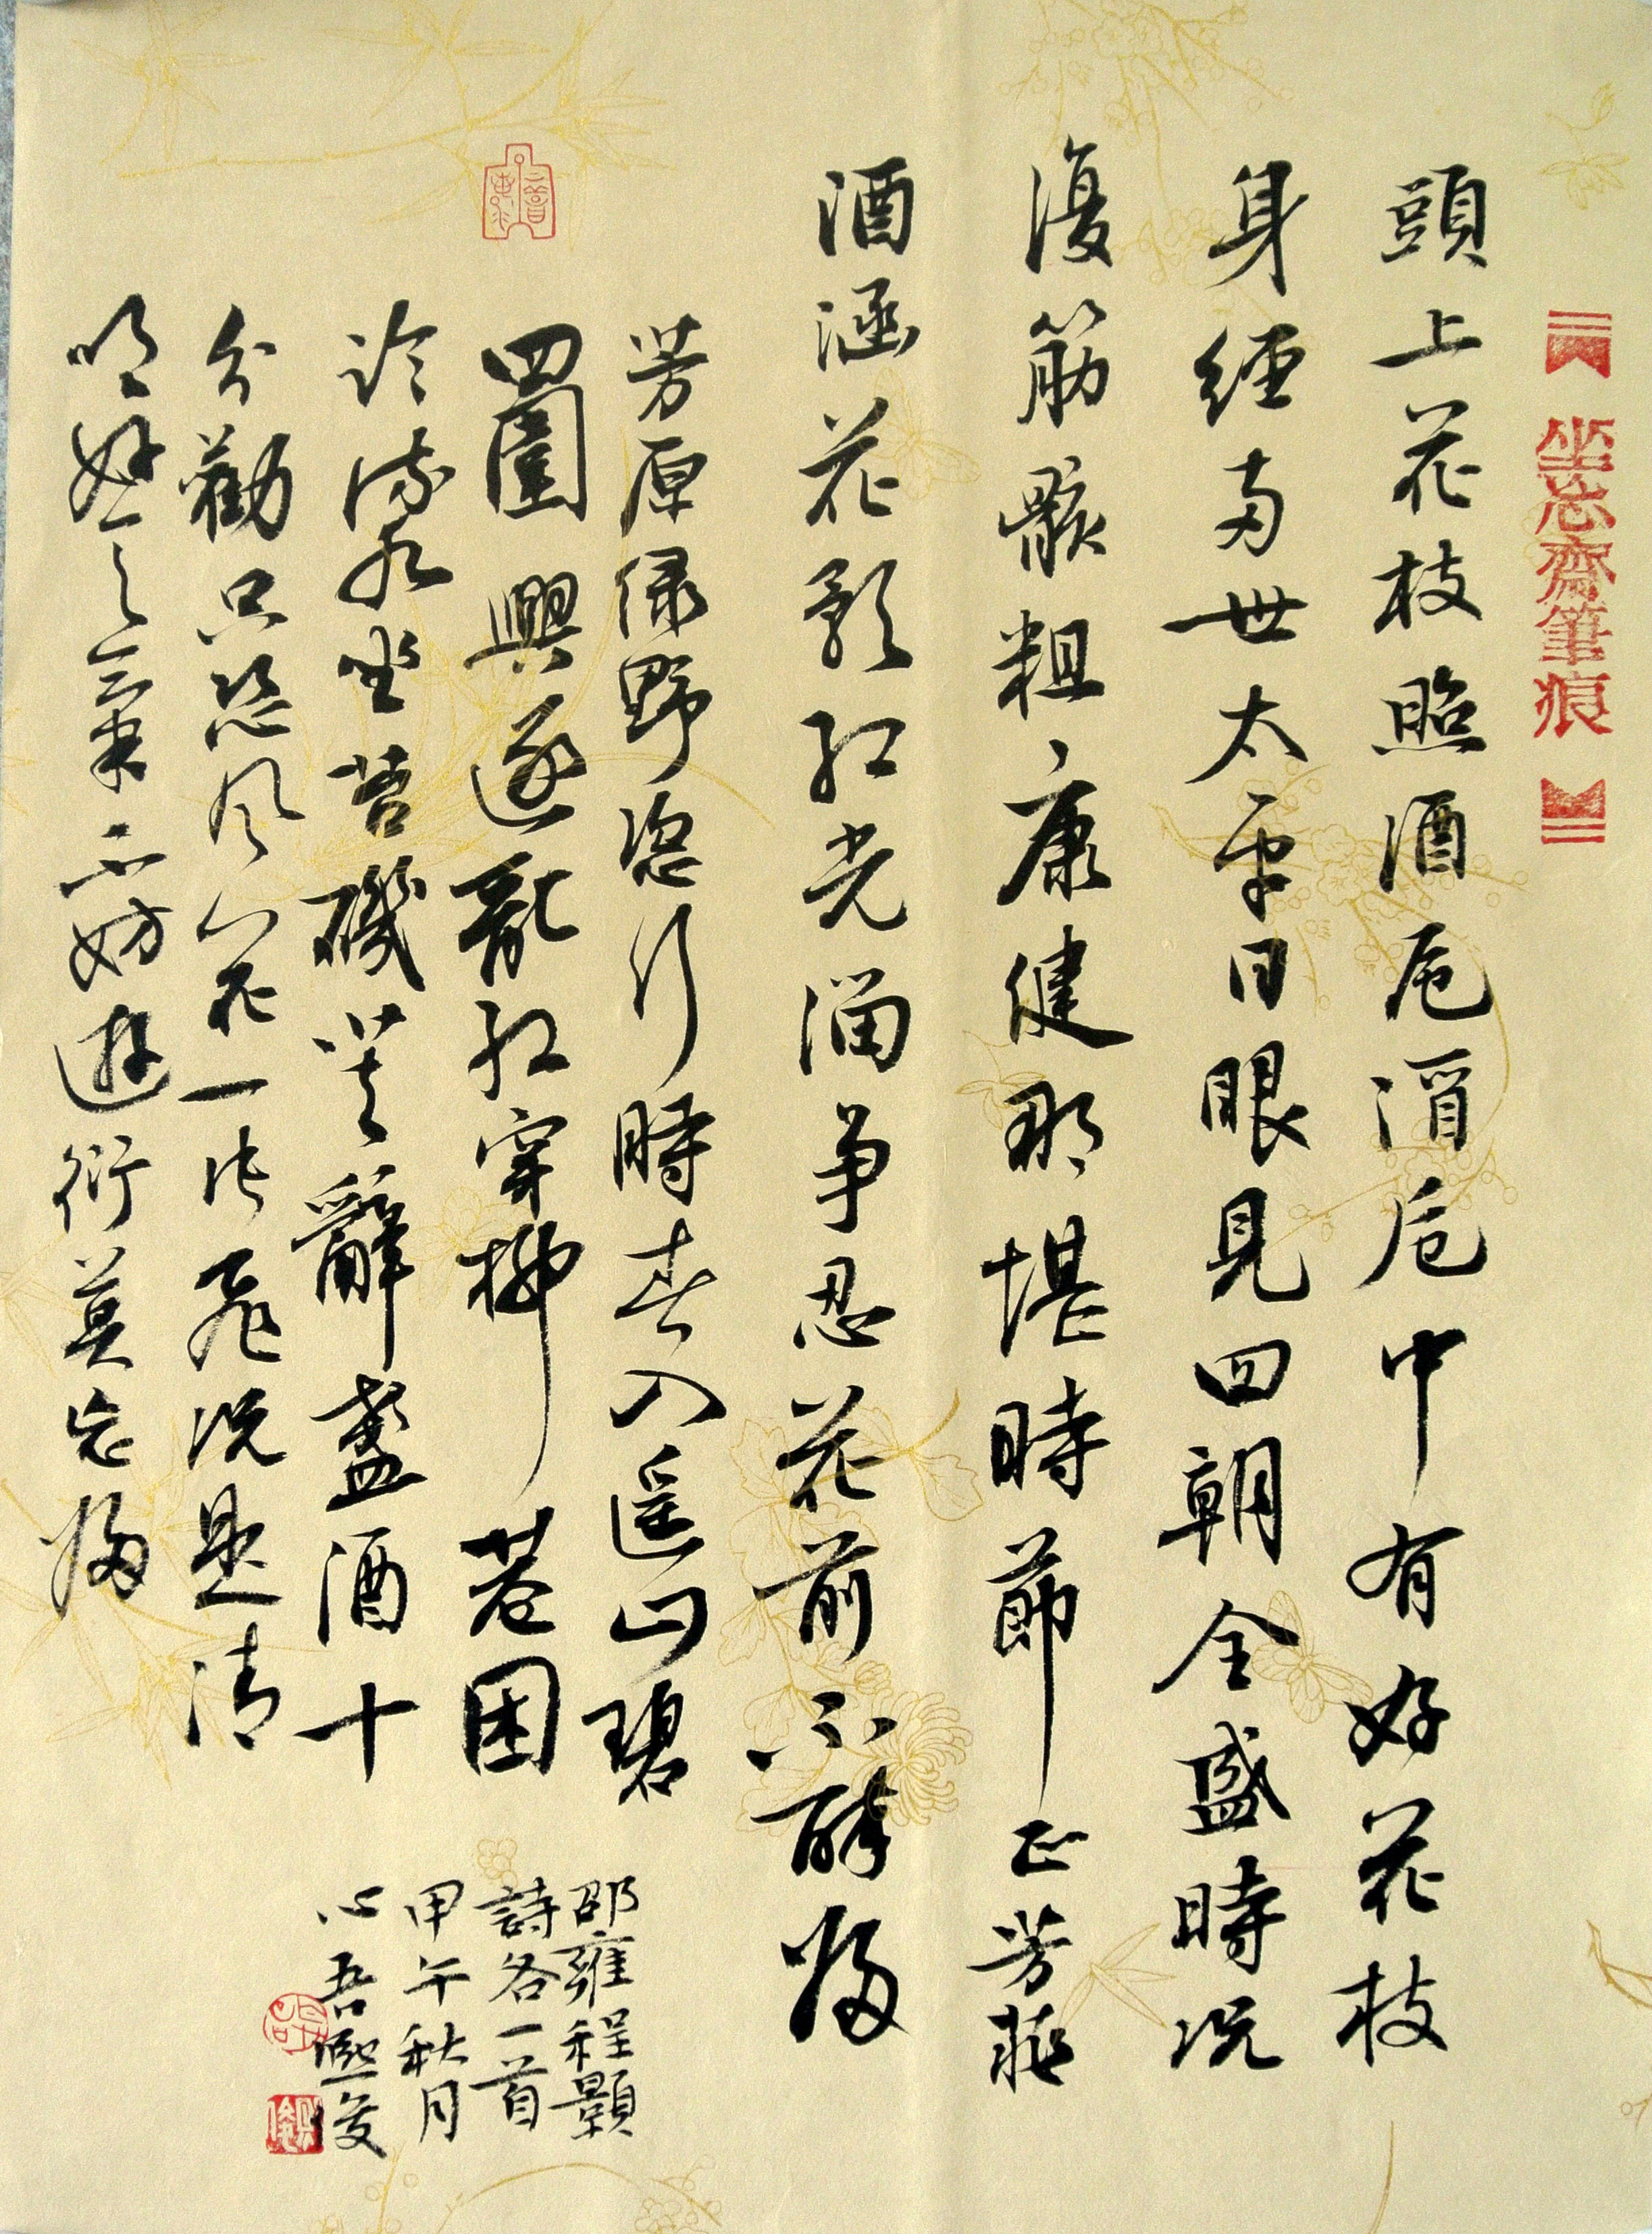 坐忘齋筆痕
頭上花枝照酒卮酒卮中有好花枝
身經两世太平日眼見四朝全盛時況
復筋骸粗康健那堪時節正芳菲
酒涵花影紅光溜争忍花前不醉歸
芳原绿野恣行時春入遥山碧
四圍興逐亂紅穿柳巷困
临流水坐苔磯莫辭盞酒十
分勸只恐风花一片飛況是清
明好天氣不妨遊衍莫忘歸
邵雍程顥
詩各一首
甲午秋月
心吾熙俊